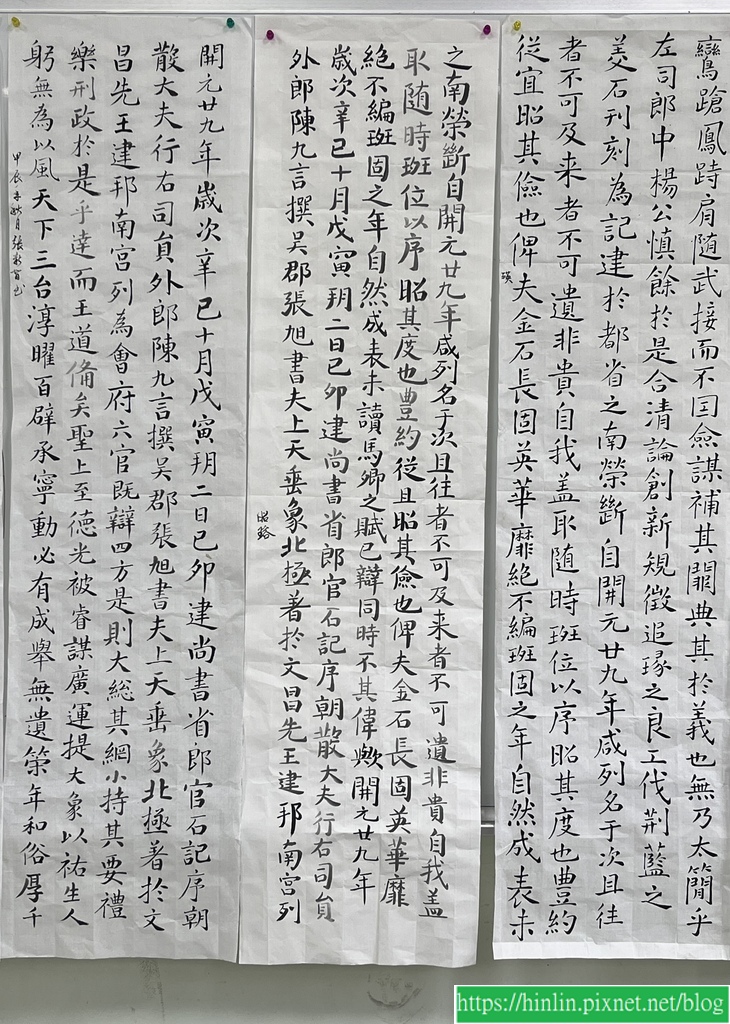 鸞蹌鳳跱肩随武接而不囙僉謀補其闕典其於義也無乃太簡乎
左司郎中楊公慎餘於是合清論創新規徵追琢之良工伐荆藍之
美石刊刻為記建於都省之南榮斷自開元廿九年咸列名于次且往
者不可及来者不可遺非貴自我盖取随時班位以序昭其度也豊約
従宜昭其儉也俾夫金石長固英華靡絶不編班固之年自然成表未
瑛
之南榮斷自開元廿九年咸列名于次且往者不可及来者不可遺非貴自我盖
取随時班位以序昭其度也豊約従且昭其儉也俾夫金石長固英華靡
絶不編班固之年自然成表未讀馬卿之賦已辯同時不其偉歟開元廿九年
歳次辛巳十月戊寅玥二日己卯建尚書省郎官石記序朝散大夫行右司貟
外郎陳九言撰吴郡張旭書夫上天垂象北極著於文昌先王建邦南宮列
開元廿九年歳次辛巳十月戊寅玥二日己卯建尚書省郎官石記序朝
散大夫行右司貟外郎陳九言撰吴郡張旭書夫上天垂象北極著於文
昌先王建邦南宮列為會府六官既辯四方是則大総其網小持其要禮
樂刑政於是乎達而王道俻矣聖上至徳光被睿謀廣運提大象以祐生人
躬無為以風天下三台淳曜百辟承寧動必有成舉無遺策年和俗厚千
https://hinlin.pixnet.net/blog